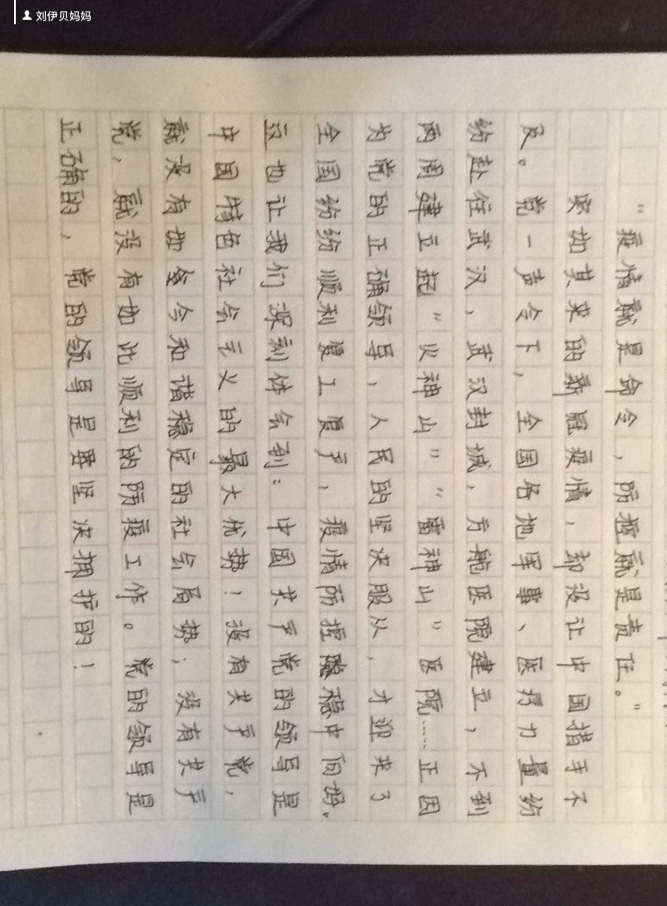 刘伊贝妈妈
"疫情就是命令，防控就是责任。"
突如其来的新冠疫情，却没让中国措手不
及。党一声令下，全国各地军事、医疗力量纷
纷赴往武汉，武汉封城，方舱医院建立，不到
两周建立起"火神山""雷神山"医院……正因
为党的正确领导，人民的坚决服从，才迎来了
全国纷纷顺利复工复产，疫情防控稳中向好。
这也让我们深刻体会到：中国共产党的领导是
中国特色社会主义的最大优势！没有共产党，
就没有如今和谐稳定的社会局势；没有共产
党，就没有如此顺利的防疫工作。党的领导是
正确的，党的领导是要坚决拥护的！